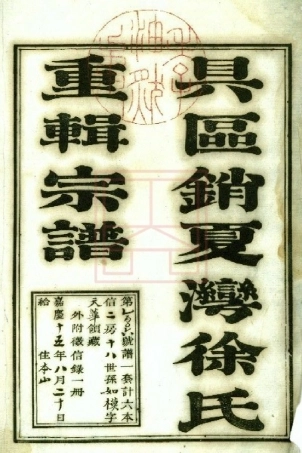 具區銷夏灣徐氏
重輯宗譜
號譜一套計六本
信二房十八世孫如楼字
天尊領藏
外附徵信錄一冊
嘉慶十五年八月二十日
給 住本山